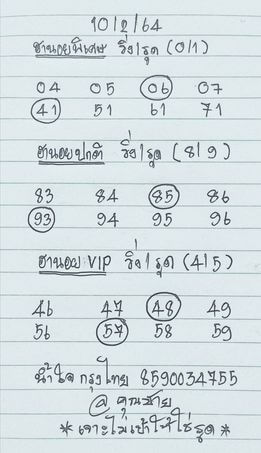 10/2/64
ฮานอยพิเศษ วิ่ง/รูด (0/1)
04 05 06 07
41 51 61 71
ฮานอยปกติ วิ่ง/รูด (8/9)
83 84 85 86
93 94 95 96
ฮานอย VIP วิ่ง/รูด (4/5)
46 47 48 49
56 57 58 59
น้ำใจ กรุงไทย 8590034755
@ คุณชาย
*เจาะไม่เข้าให้ใช่รูด*